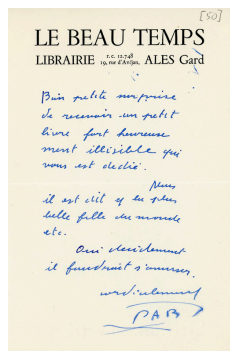 [50]
LE BEAU TEMPS
LIBRAIRIE r.c. 12.748 19, rue d'Avéjan, ALES Gard
Bien petite surprise
de recevoir un petit
livre fort heureuse
ment illisible qui
vous est dédié.
il est dit q la plus
belle fille du monde
etc.
Oui décidément
il faudrait s'amuser.
cordialement
PAB